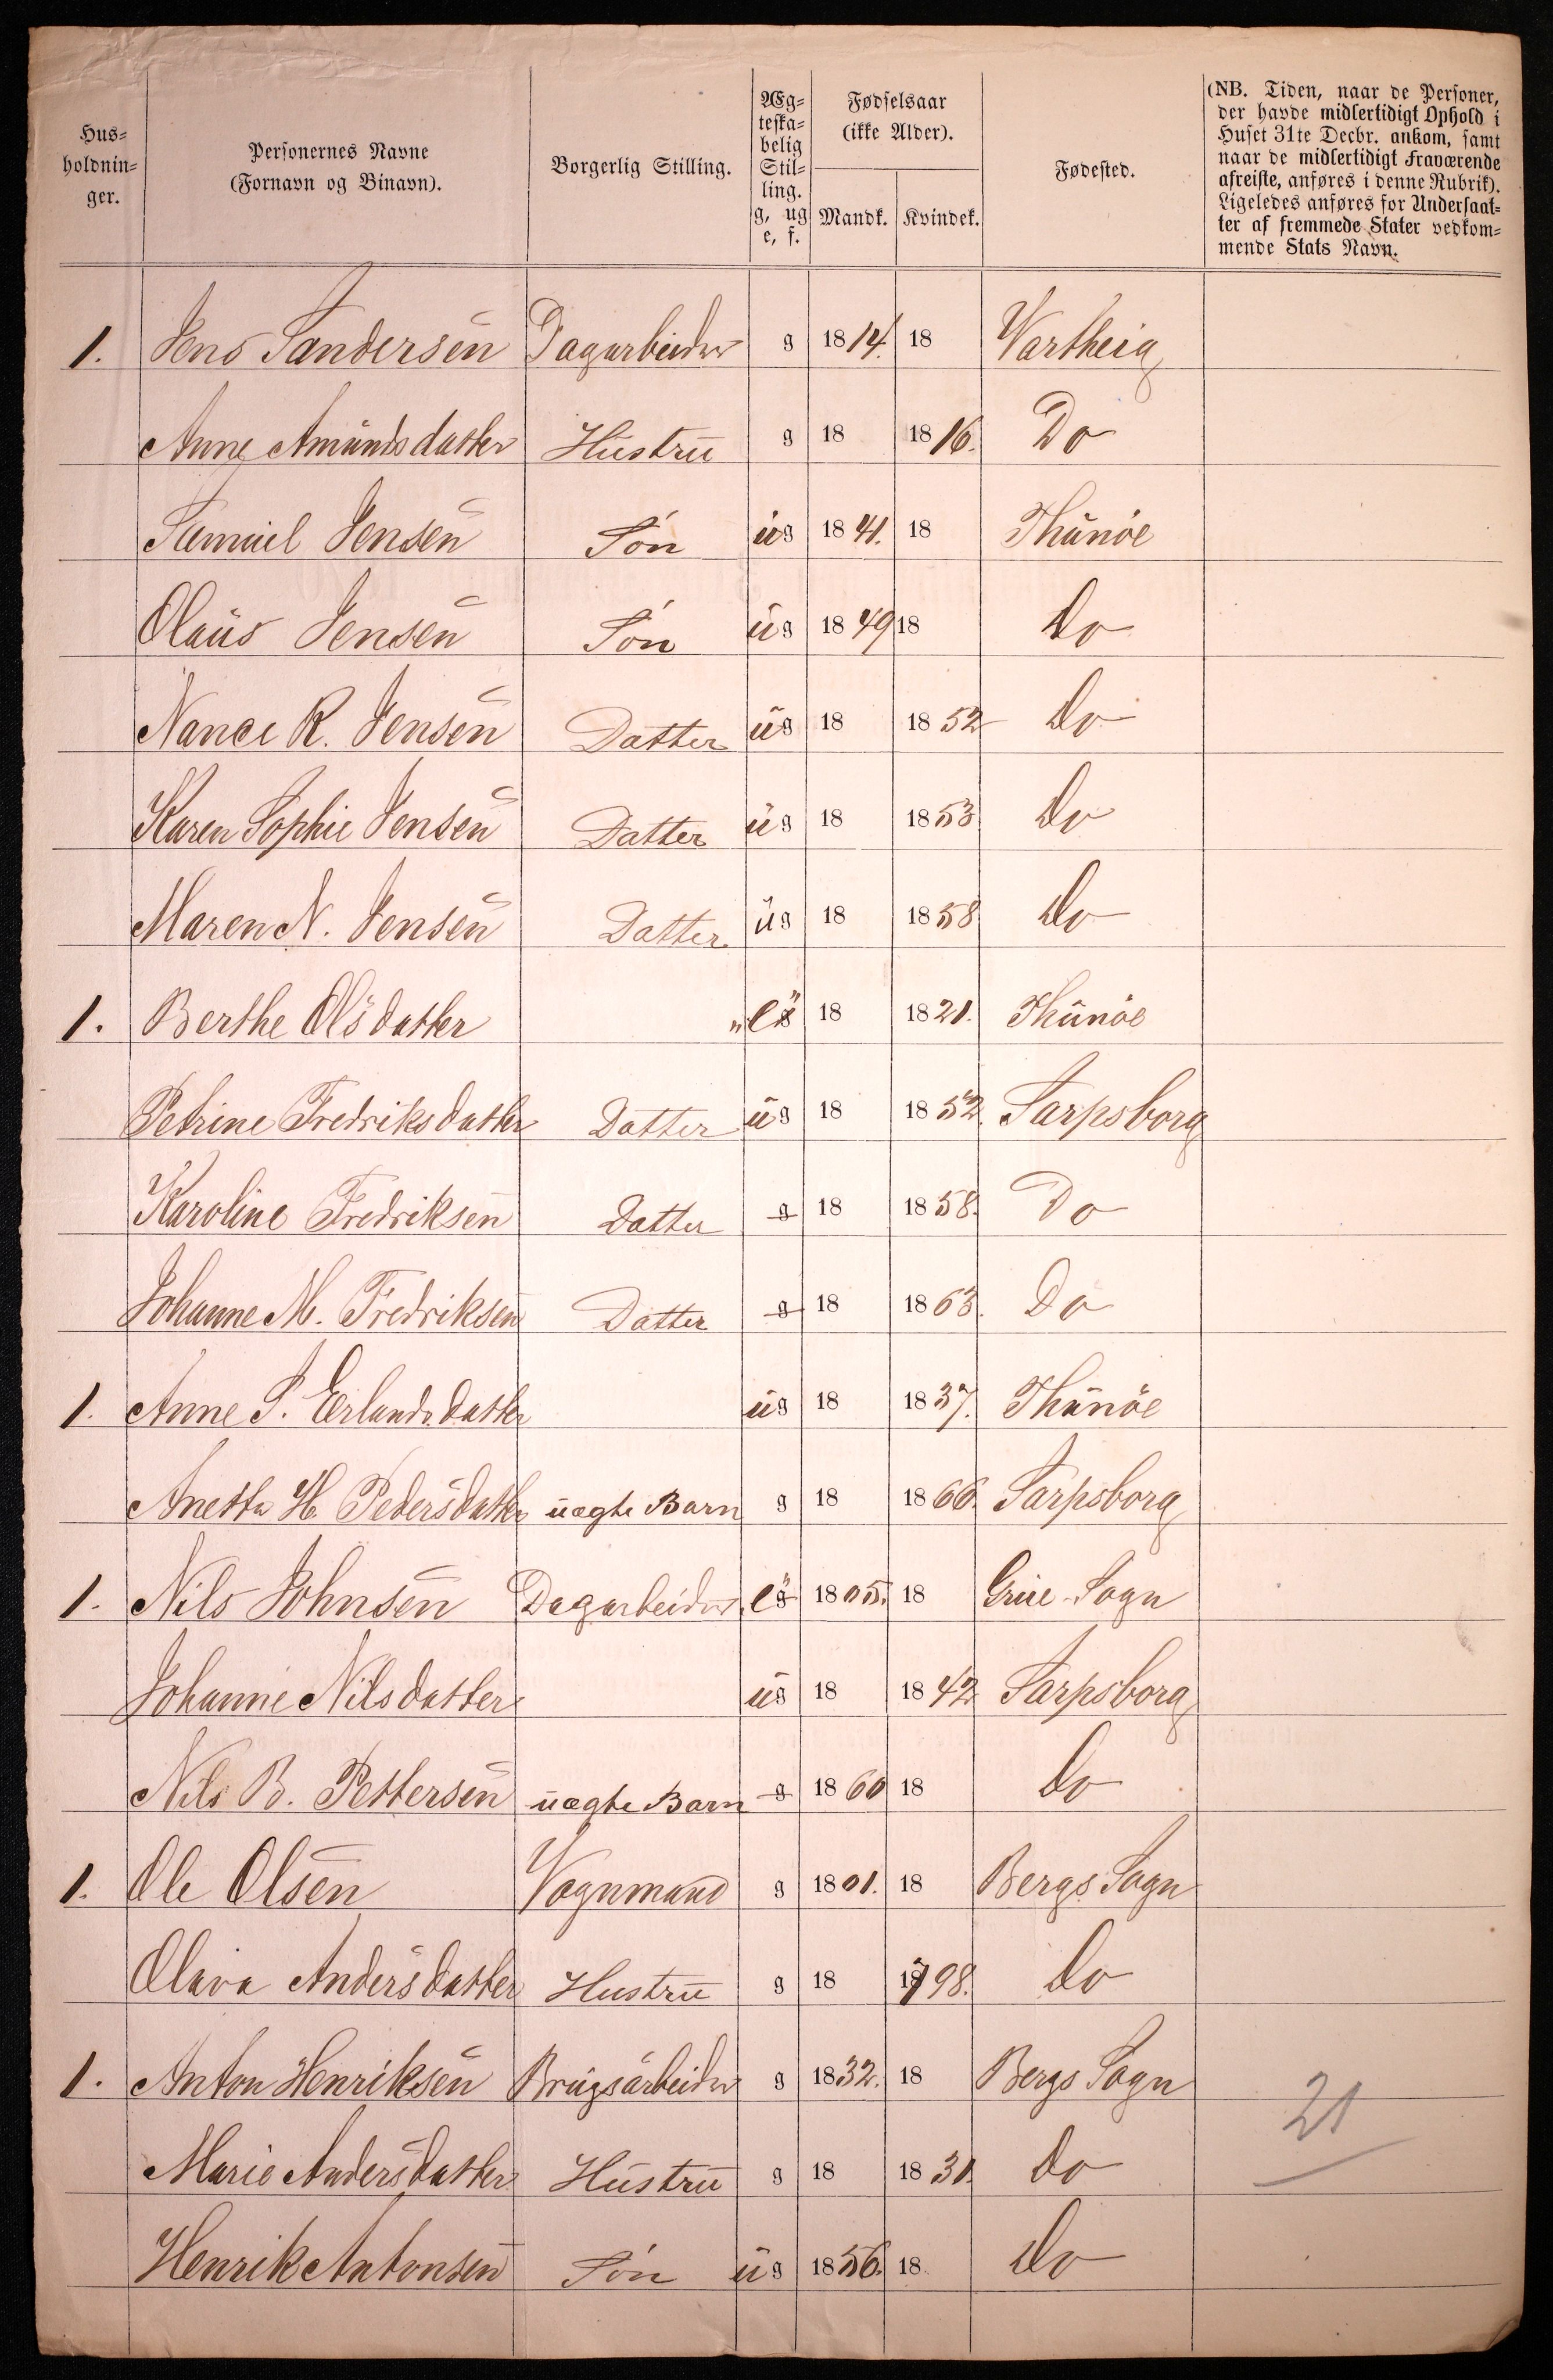 Hus-
holdnin-
ger.
Personernes Navne
(Fornavn og Binavn).
Borgerlig Stilling.
Æg-
teska-
belig
Stil-
ling.
g, ug
e, f.
Fødselsaar
(ikke Alder).
Mandk. Kvindek.
Fødested.
(NB. Tiden, naar de Personer,
der havde midlertidigt Ophold i
Huset 31te Decbr. ankom, samt
naar de midlertidigt Fraværende
afreiste, anføres i denne Rubrik).
Ligeledes anføres for Undersaat-
ter af fremmede Stater vedkom-
mende Stats Navn.
1. Jens Sandersen Dagarbeider g 1814. 18 Vartheig
Anne Amundsdatter Hustru g 18 1816. Do
Samuel Jensen Søn ug 1841. 18 Thunøe
Olaus Jensen Søn ug 1849 18 Do
Nance R. Jensen Datter ug 18 1852 Do
Karen Sophie Jensen Datter ug 18 1853 Do
Maren N. Jensen Datter ug 18 1858 Do
1. Berthe Olsdatter "e" 18 1821. Thunøe
Petrine Fredriksdatter Datter ug 18 1852. Sarpsborg
Karoline Fredriksen Datter g 18 1858. Do
Johanne M. Fredriksen Datter g 18 1863. Do
1. Anne S. Erlandsdatter ug 18 1837. Thunøe
Anette H. Pedersdatter uægte Barn g 18 1866. Sarpsborg
1. Nils Johnsen Dagarbeider "e" 1805. 18 Grue Sogn
Johanne Nilsdatter ug 18 1842 Sarpsborg
Nils B. Pettersen uægte Barn g 1860 18 Do
1. Ole Olsen Vognmand g 1801. 18 Bergs Sogn
Olava Andersdatter Hustru g 18 1798. Do
1. Anton Henriksen Brugsarbeider g 1832. 18 Bergs Sogn
21
Marie Andersdatter Hustru g 18 1831. Do
Henrik Antonsen Søn ug 1856. 18 Do